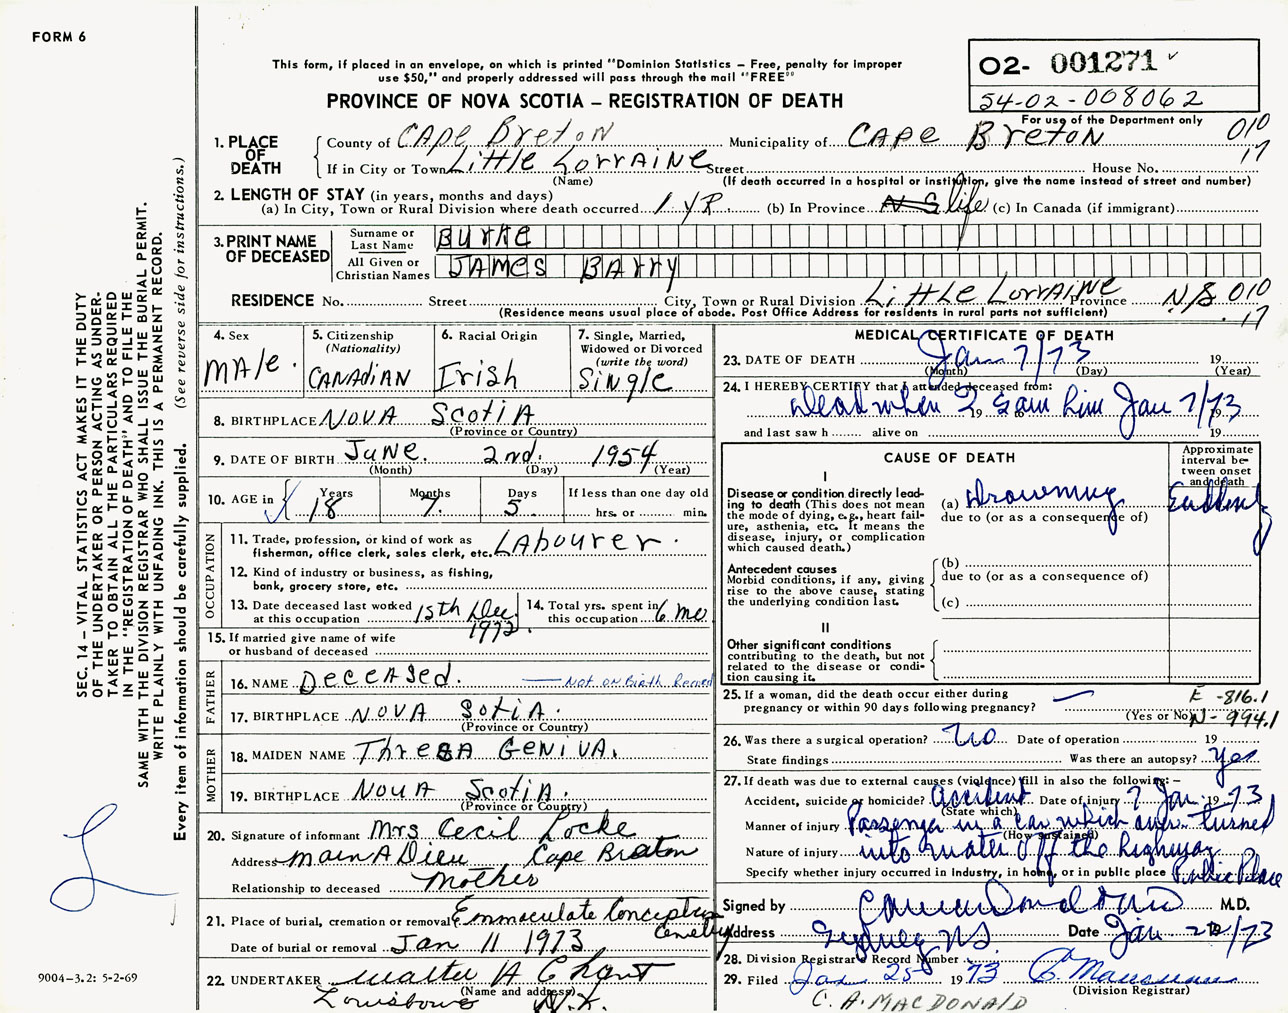 FORM 6
This form, if placed in an envelope, on which is printed "Dominion Statistics — Free, penalty for improper
use $50," and properly addressed will pass through the mail "FREE"
PROVINCE OF NOVA SCOTIA — REGISTRATION OF DEATH
O2- 001271
54-02-008062
For use of the Department only
010
17
1. PLACE OF DEATH
County of CAPE BRETON Municipality of CAPE BRETON
If in City or Town Little Lorraine Street House No.
(Name) (If death occurred in a hospital or institution, give the name instead of street and number)
2. LENGTH OF STAY (in years, months and days)
(a) In City, Town or Rural Division where death occurred 1 YR. (b) In Province N S life (c) In Canada (if immigrant)
3. PRINT NAME OF DECEASED
Surname or Last Name BURKE
All Given or Christian Names JAMES BARRY
RESIDENCE No. Street City, Town or Rural Division Little Lorraine Province N.S. 010
(Residence means usual place of abode. Post Office Address for residents in rural parts not sufficient) 17
4. Sex MAle.
5. Citizenship (Nationality) CANADIAN
6. Racial Origin Irish
7. Single, Married, Widowed or Divorced (write the word) Single
8. BIRTHPLACE NOVA SCOTIA
(Province or Country)
9. DATE OF BIRTH JUNE. 2nd. 1954
(Month) (Day) (Year)
10. AGE in Years 18 Months 7. Days 5 If less than one day old
hrs. or min.
OCCUPATION
11. Trade, profession, or kind of work as
fisherman, office clerk, sales clerk, etc. LABOURER.
12. Kind of industry or business, as fishing,
bank, grocery store, etc.
13. Date deceased last worked at this occupation 15th Dec 1972.
14. Total yrs. spent in this occupation 6 mo
15. If married give name of wife
or husband of deceased
FATHER
16. NAME DECEASED. — Not on Birth Record
17. BIRTHPLACE NOVA SOTIA.
(Province or Country)
MOTHER
18. MAIDEN NAME THRESA GENIVA.
19. BIRTHPLACE NOVA SCOTIA.
(Province or Country)
20. Signature of informant Mrs Cecil Locke
Address Main A Dieu, Cape Breton
Relationship to deceased Mother
21. Place of burial, cremation or removal Emmaculate Conception Cemetery
Date of burial or removal Jan 11 1973
22. UNDERTAKER Walter A Chant
(Name and address)
Louisbourg N.S.
MEDICAL CERTIFICATE OF DEATH
23. DATE OF DEATH Jan 7/73 19
(Month) (Day) (Year)
24. I HEREBY CERTIFY that I attended deceased from:
Dead when I saw him Jan 7/73 19 19
and last saw h alive on 19
CAUSE OF DEATH
Approximate interval between onset and death
I
Disease or condition directly leading to death (This does not
mean the mode of dying, e.g., heart failure, asthenia, etc. It means the
disease, injury, or complication which caused death.)
(a) Drowning Suddenly
due to (or as a consequence of)
Antecedent causes
Morbid conditions, if any, giving
rise to the above cause, stating
the underlying condition last.
(b)
due to (or as a consequence of)
(c)
II
Other significant conditions
contributing to the death, but not
related to the disease or condition causing it.
25. If a woman, did the death occur either during
pregnancy or within 90 days following pregnancy? —
(Yes or No)
E -816.1
N- 994.1
26. Was there a surgical operation? No Date of operation 19
State findings Was there an autopsy? Yes
27. If death was due to external causes (violence) fill in also the following:—
Accident, suicide or homicide? Accident Date of injury 7 Jan 1973
(State which)
Manner of injury Passenger in a car which over-turned
(How sustained)
Nature of injury into water off the highway
Specify whether injury occurred in Industry, in home, or in public place Public Place
Signed by M.D.
Address Sydney NS. Date Jan 22/73
28. Division Registrar's Record Number
29. Filed Jan 25 1973
(Division Registrar)
C. A. MACDONALD
SEC. 14 — VITAL STATISTICS ACT MAKES IT THE DUTY
OF THE UNDERTAKER OR PERSON ACTING AS UNDER-
TAKER TO OBTAIN ALL THE PARTICULARS REQUIRED
IN THE "REGISTRATION OF DEATH" AND TO FILE THE
SAME WITH THE DIVISION REGISTRAR WHO SHALL ISSUE THE BURIAL PERMIT.
WRITE PLAINLY WITH UNFADING INK. THIS IS A PERMANENT RECORD.
Every item of information should be carefully supplied. (See reverse side for instructions.)
9004-3.2: 5-2-69